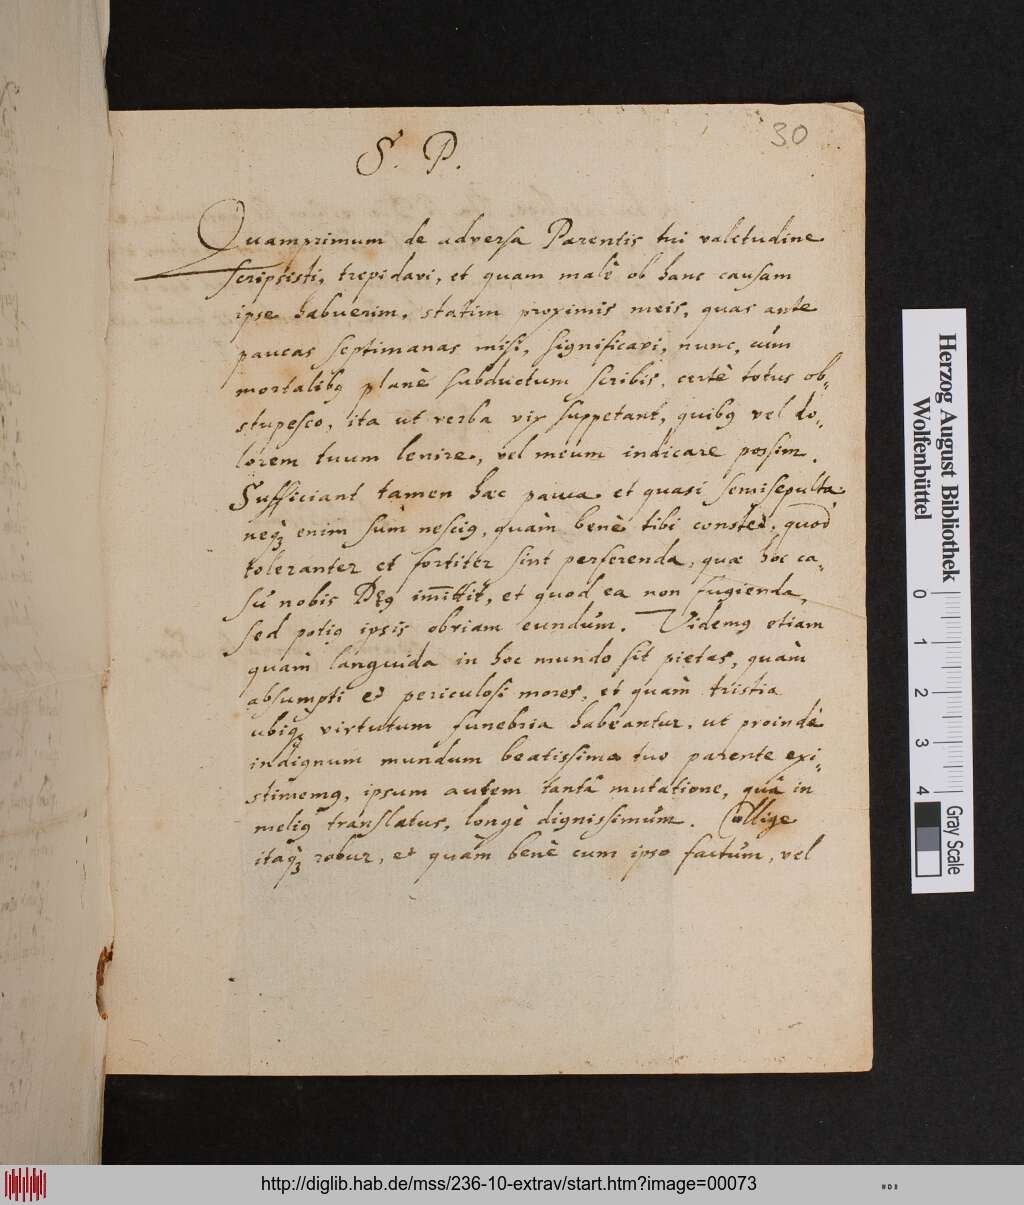 30
S. P.
Quamprimum de adversa Parentis tui valetudine
scripsisti, trepidavi, et quam malè ob hanc causam
ipse habuerim, statim proximis meis, quas ante
paucas septimanas misi, significavi, nunc, cùm
mortalibꝰ planè subductum scribis, certè totus ob-
stupesco, ita ut verba vix suppetant, quibꝰ vel do-
lorem tuum lenire, vel meum indicare possim.
Sufficiant tamen hæc pauca et quasi semisepulta:
neqꝫ enim sùm nesciꝰ, quàm benè tibi constet, quod
toleranter et fortiter sint perferenda, quæ hoc ca-
sù nobis Deꝰ im̄ittit, et quod ea non fugienda,
sed potiꝰ ipsis obviam eundùm. Videmꝰ etiam
quàm languida in hoc mundo sit pietas, quàm
absumpti et periculosi mores, et quàm tristia
ubiqꝫ virtutum funebria habeantur, ut proindè
indignum mundum beatissimo tuo parente exi-
stimemꝰ, ipsum autem tantâ mutatione, quâ in
meliꝰ translatus, longè dignissimùm. Collige
itaqꝫ robur, et quàm benè cum ipso factùm, vel
Herzog August Bibliothek
Wolfenbüttel
0 1 2 3 4
Gray Scale
http://diglib.hab.de/mss/236-10-extrav/start.htm?image=00073